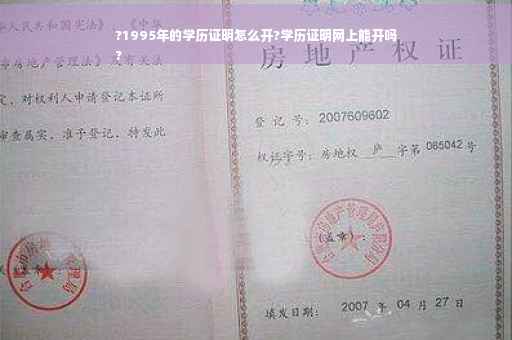 ?1995年的学历证明怎么开?学历证明网上能开吗
?
华人民共和国宪法》 《中华
市房地产管理法》及有关法
定，对权利人申请登记本证所
审查属实，准予登记，特发此
房地产权证
登记号：2007609602
权证字号：房地权 庐 字第 085042 号
(盖章)：
填发日期： 2007 年 04 月 27 日